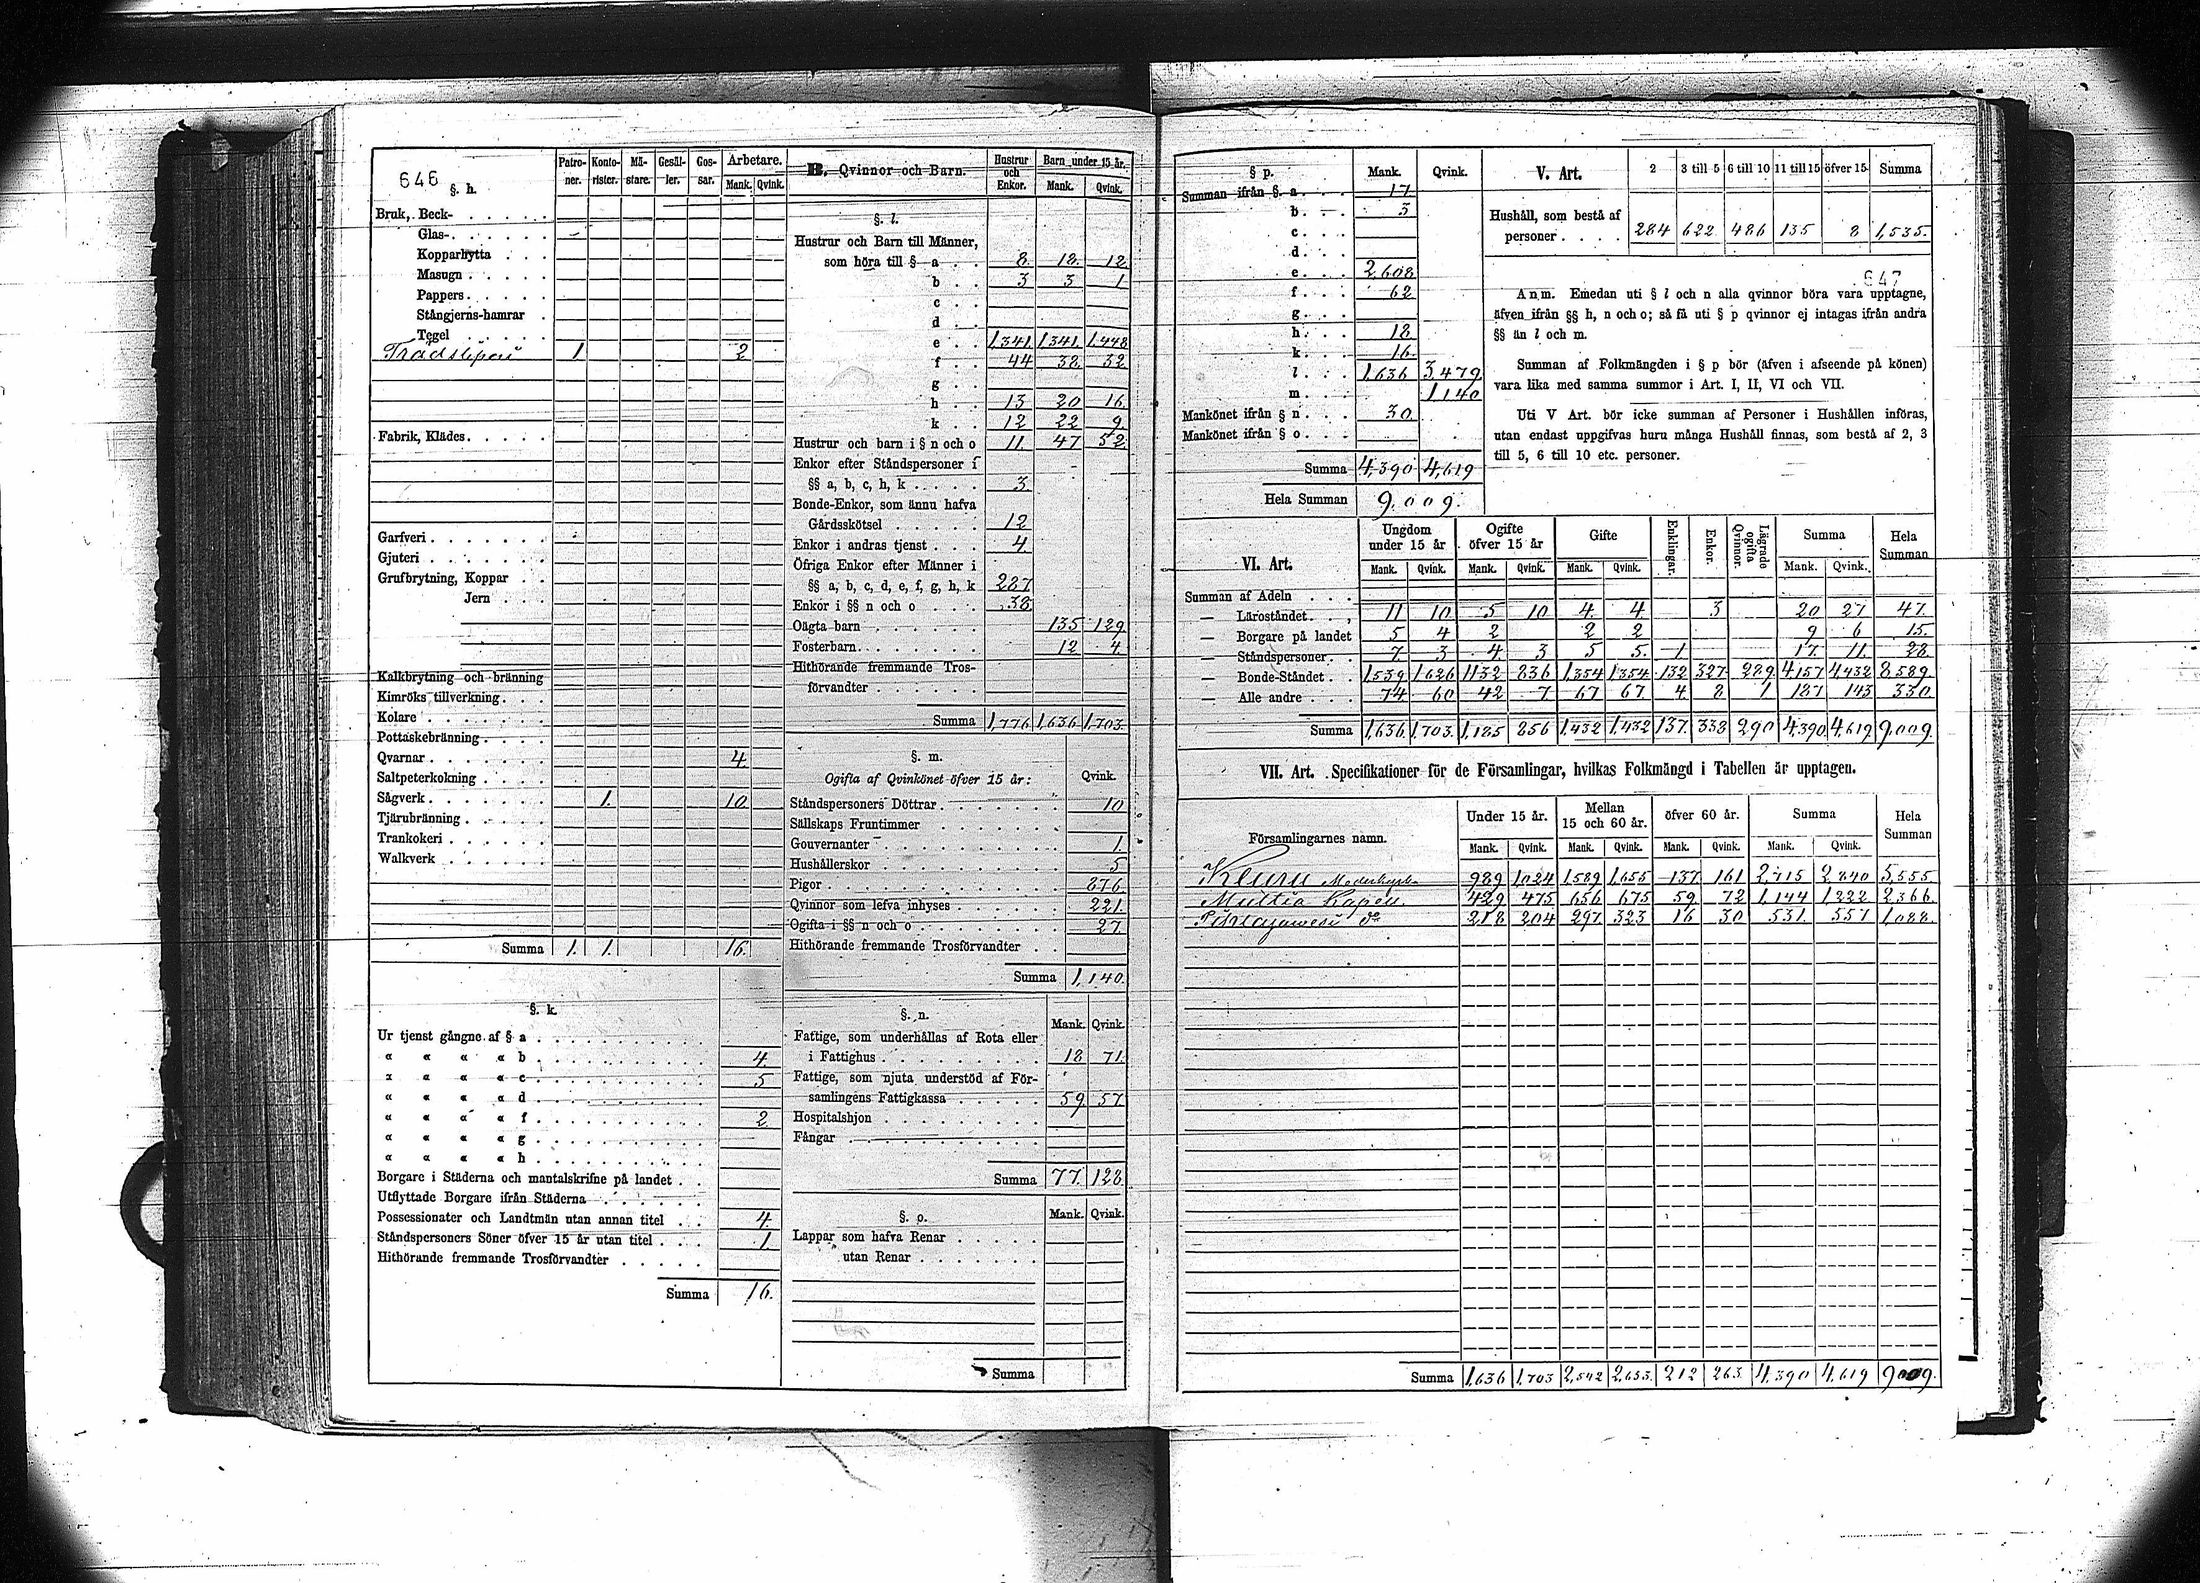 646
§. h.
Patro-ner. Konto-rister. Mä-stare. Gesäl-ler. Gos-sar. Arbetare. Mank. Qvink.
Bruk, Beck-
Glas-
Kopparhytta
Masugn
Pappers
Stångjerns-hamrar
Tegel
Trädsliperi 1 2
Fabrik, Klädes
Garfveri
Gjuteri
Grufbrytning, Koppar
Jern
Kalkbrytning och bränning
Kimröks tillverkning
Kolare
Pottaskebränning
Qvarnar 4
Saltpeterkokning
Sågverk 1. 10
Tjärubränning
Trankokeri
Walkverk
Summa 1. 1. 16.
§. k.
Ur tjenst gångne af § a
« « « « b 4.
« « « « c 5
« « « « d
« « « « f 2
« « « « g
« « « « h
Borgare i Städerna och mantalskrifne på landet
Utflyttade Borgare ifrån Städerna
Possessionater och Landtmän utan annan titel 4.
Ståndspersoners Söner öfver 15 år utan titel 1.
Hithörande fremmande Trosförvandter
Summa 16.
B. Qvinnor och Barn. Hustrur och Enkor. Barn under 15 år. Mank. Qvink.
§. l.
Hustrur och Barn till Männer,
som höra till § a 8. 18. 12
b 3 3 1
c
d
e 1,341 1,341 1,448
f 44 38 32
g
h 13 20 16
k 12 22 9
Hustrur och barn i § n och o 11. 47 52
Enkor efter Ståndspersoner i
§§ a, b, c, h, k 3
Bonde-Enkor, som ännu hafva
Gårdsskötsel 12
Enkor i andras tjenst 4
Öfriga Enkor efter Männer i
§§ a, b, c, d, e, f, g, h, k 287
Enkor i §§ n och o 38
Oägta barn 135 129
Fosterbarn 12 4
Hithörande fremmande Tros-
förvandter
Summa 1,776 1,636 1,703.
§. m.
Ogifta af Qvinkönet öfver 15 år: Qvink.
Ståndspersoners Döttrar 10
Sällskaps Fruntimmer
Gouvernanter 1.
Hushållerskor 5
Pigor 876
Qvinnor som lefva inhyses 221.
Ogifta i §§ n och o 27.
Hithörande fremmande Trosförvandter
Summa 1,140.
§. n. Mank. Qvink.
Fattige, som underhållas af Rota eller
i Fattighus 18 71.
Fattige, som njuta understöd af För-
samlingens Fattigkassa 59. 57.
Hospitalshjon
Fångar
Summa 77. 128.
§. o. Mank. Qvink.
Lappar som hafva Renar
utan Renar
Summa
§ p. Mank. Qvink.
Summan ifrån §. a 17.
b 3
c
d
e 2,608
f 62
g
h 18
k 16.
l 1,636 3,479
m 1,140
Mankönet ifrån § n 30.
Mankönet ifrån § o
Summa 4,390 4,619
Hela Summan 9,009.
V. Art. 2 3 till 5 6 till 10 11 till 15 öfver 15 Summa
Hushåll, som bestå af
personer 284 622 486 135 8 1,535.
647
Anm. Emedan uti § l och n alla qvinnor böra vara upptagne,
äfven ifrån §§ h, n och o; så få uti § p qvinnor ej intagas ifrån andra
§§ än l och m.
Summan af Folkmängden i § p bör (äfven i afseende på könen)
vara lika med samma summor i Art. I, II, VI och VII.
Uti V Art. bör icke summan af Personer i Hushållen införas,
utan endast uppgifvas huru många Hushåll finnas, som bestå af 2, 3
till 5, 6 till 10 etc. personer.
VI. Art. Ungdom under 15 år Ogifte öfver 15 år Gifte Enklingar. Enkor. Lägrade ogifta Qvinnor. Summa Hela Summan
Mank. Qvink. Mank. Qvink. Mank. Qvink. Mank. Qvink.
Summan af Adeln
— Läroståndet 11 10 5 10 4 4 3 20 27 47.
— Borgare på landet 5 4 2 2 2 9 6 15.
— Ståndspersoner 7. 3 4. 3 5 5. 1 17. 11. 28
— Bonde-Ståndet 1,539 1,626 1132 836 1,354 1,354 132 327. 289. 4,157 4,432 8,589.
— Alle andre 74 60 42 7 67 67 4 8 1 187 143 330
Summa 1,636 1,703. 1,185 856 1,432 1,432 137. 338 290 4,390 4,619 9,009.
VII. Art. Specifikationer för de Församlingar, hvilkas Folkmängd i Tabellen är upptagen.
Församlingarnes namn. Under 15 år. Mellan 15 och 60 år. öfver 60 år. Summa Hela Summan
Mank. Qvink. Mank. Qvink. Mank. Qvink. Mank. Qvink.
Keuru Moderkyrka 989 1024 1,589 1,655 137. 161 2,715 2,840 5,555
Multia Kapell 429 475 656 675 59. 72 1,144 1,222 2,366
Pihlajavesi do 218 204 297. 323 16 30 531. 557 1,088.
Summa 1,636 1,703 2,542 2,653. 212 263. 4,390 4,619 9,009.